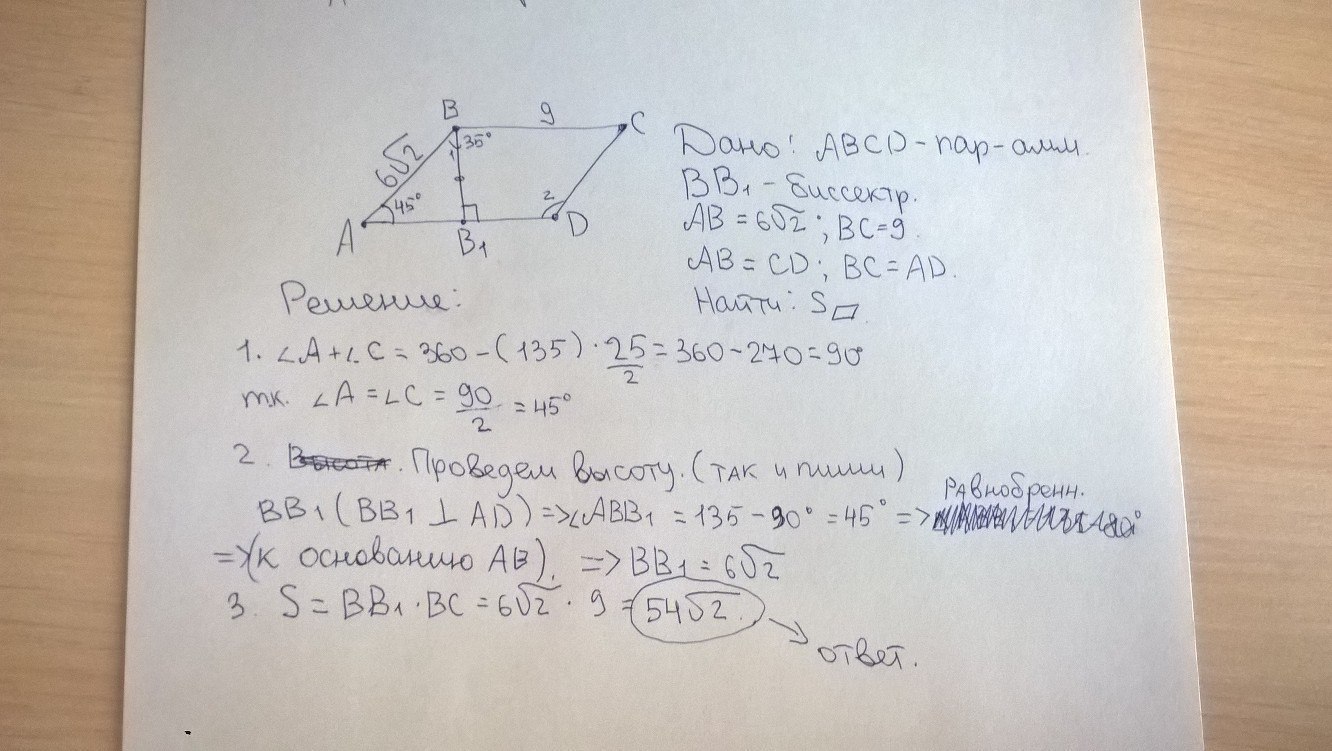 B 9 C
6√2 1 35°
45° 2
A B₁ D
Дано: ABCD - пар-амм.
BB₁ - биссектр.
AB = 6√2; BC=9.
AB = CD; BC = AD.
Найти: S▱
Решение:
1. ∠A+∠C = 360 - (135) · 25/2 = 360 - 270 = 90°
т.к. ∠A = ∠C = 90/2 = 45°
2. Проведем высоту. (так и пиши)
Равнобренн.
BB₁ (BB₁ ⊥ AD) => ∠ABB₁ = 135 - 90° = 45° =>
=> (к основанию AB). => BB₁ = 6√2
3. S = BB₁ · BC = 6√2 · 9 = 54√2.
ответ.